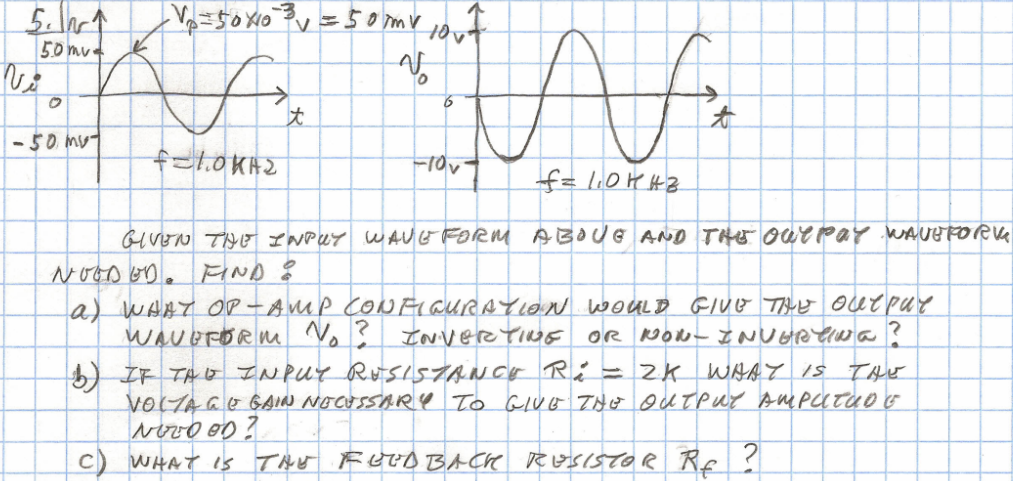 5.1 Vp=50x10⁻³v = 50mv
v
50mv
Vi
0
-50mv
t
f=1.0KHZ
10v
Vo
0
-10v
t
f=1.0KHZ
GIVEN THE INPUT WAVEFORM ABOVE AND THE OUTPUT WAVEFORM
NEEDED. FIND:
a) WHAT OP-AMP CONFIGURATION WOULD GIVE THE OUTPUT
WAVEFORM Vo? INVERTING OR NON-INVERTING?
b) IF THE INPUT RESISTANCE Ri = 2K WHAT IS THE
VOLTAGE GAIN NECESSARY TO GIVE THE OUTPUT AMPLITUDE
NEEDED?
c) WHAT IS THE FEEDBACK RESISTOR Rf ?